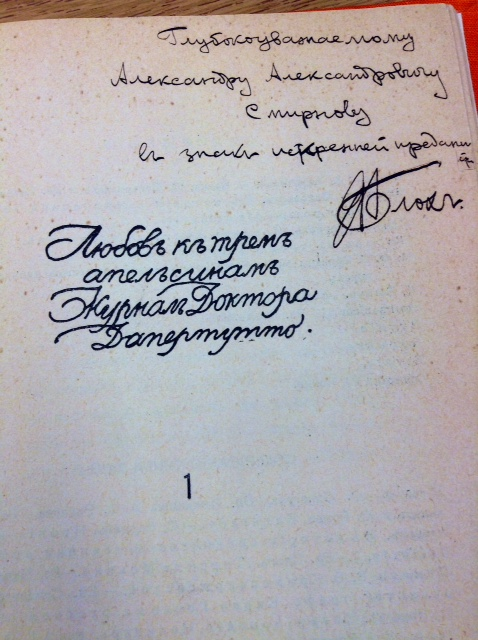 Глубокоуважаемому
Александру Александровичу
Смирнову
въ знакъ искренней предан
АБлокъ.
Любовь къ тремъ
апельсинамъ
Журналъ Доктора
Дапертутто.
1